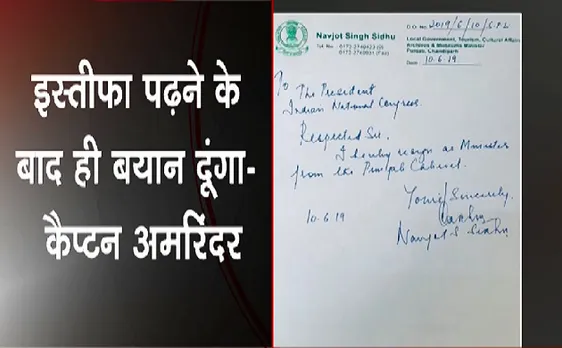 इस्तीफा पढ़ने के
बाद ही बयान दूंगा-
कैप्टन अमरिंदर
Navjot Singh Sidhu
D.O. No. 2019/6/10/S.P.L
Local Government, Tourism, Cultural Affairs
Archives & Museums Minister
Punjab, Chandigarh
Date 10.6.19
To
The President
Indian National Congress.
Respected Sir.
I hereby resign as Minister
from the Punjab Cabinet.
Yours Sincerely.
10.6.19
Navjot S. Sidhu